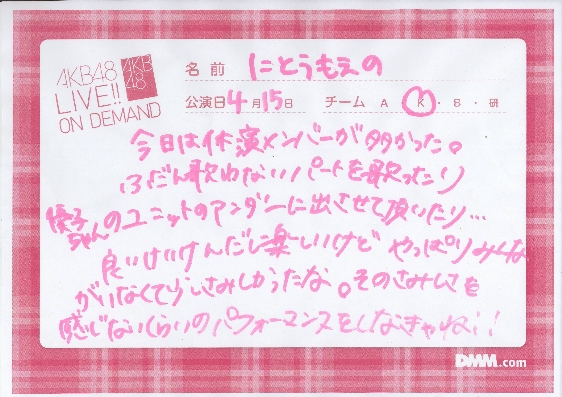 AKB48
LIVE!!
ON DEMAND
AKB
48
名前 にとうもえの
公演日 4月15日 チーム A・K・B・研
今日は休演メンバーが多かった。
ふだん歌わないパートを歌ったり
優子ちゃんのユニットのアンダーに出させて頂いたり…
良いけいけんだし楽しいけど やっぱりみんな
がいなくて少しさみしかったな。そのさみしさを
感じないくらいのパフォーマンスをしなきゃね!!
DMM.com